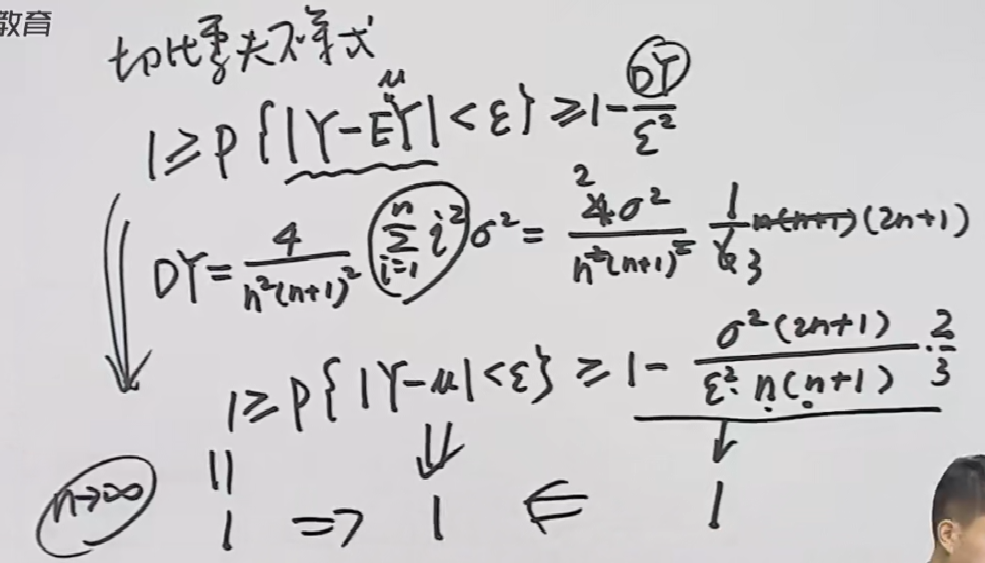 教育
切比雪夫不等式
μ
1≥P{|Y-EY|<ε}≥1-DY/ε²
DY=4/(n²(n+1)²) Σ_{i=1}^{n} i²σ²= 2 4σ²/(n²(n+1)²) 1/6 3 n(n+1)(2n+1)
1≥P{|Y-μ|<ε}≥1-σ²(2n+1)/(ε²·n(n+1))·2/3
n→∞ 1 ⇒ 1 ⇐ 1